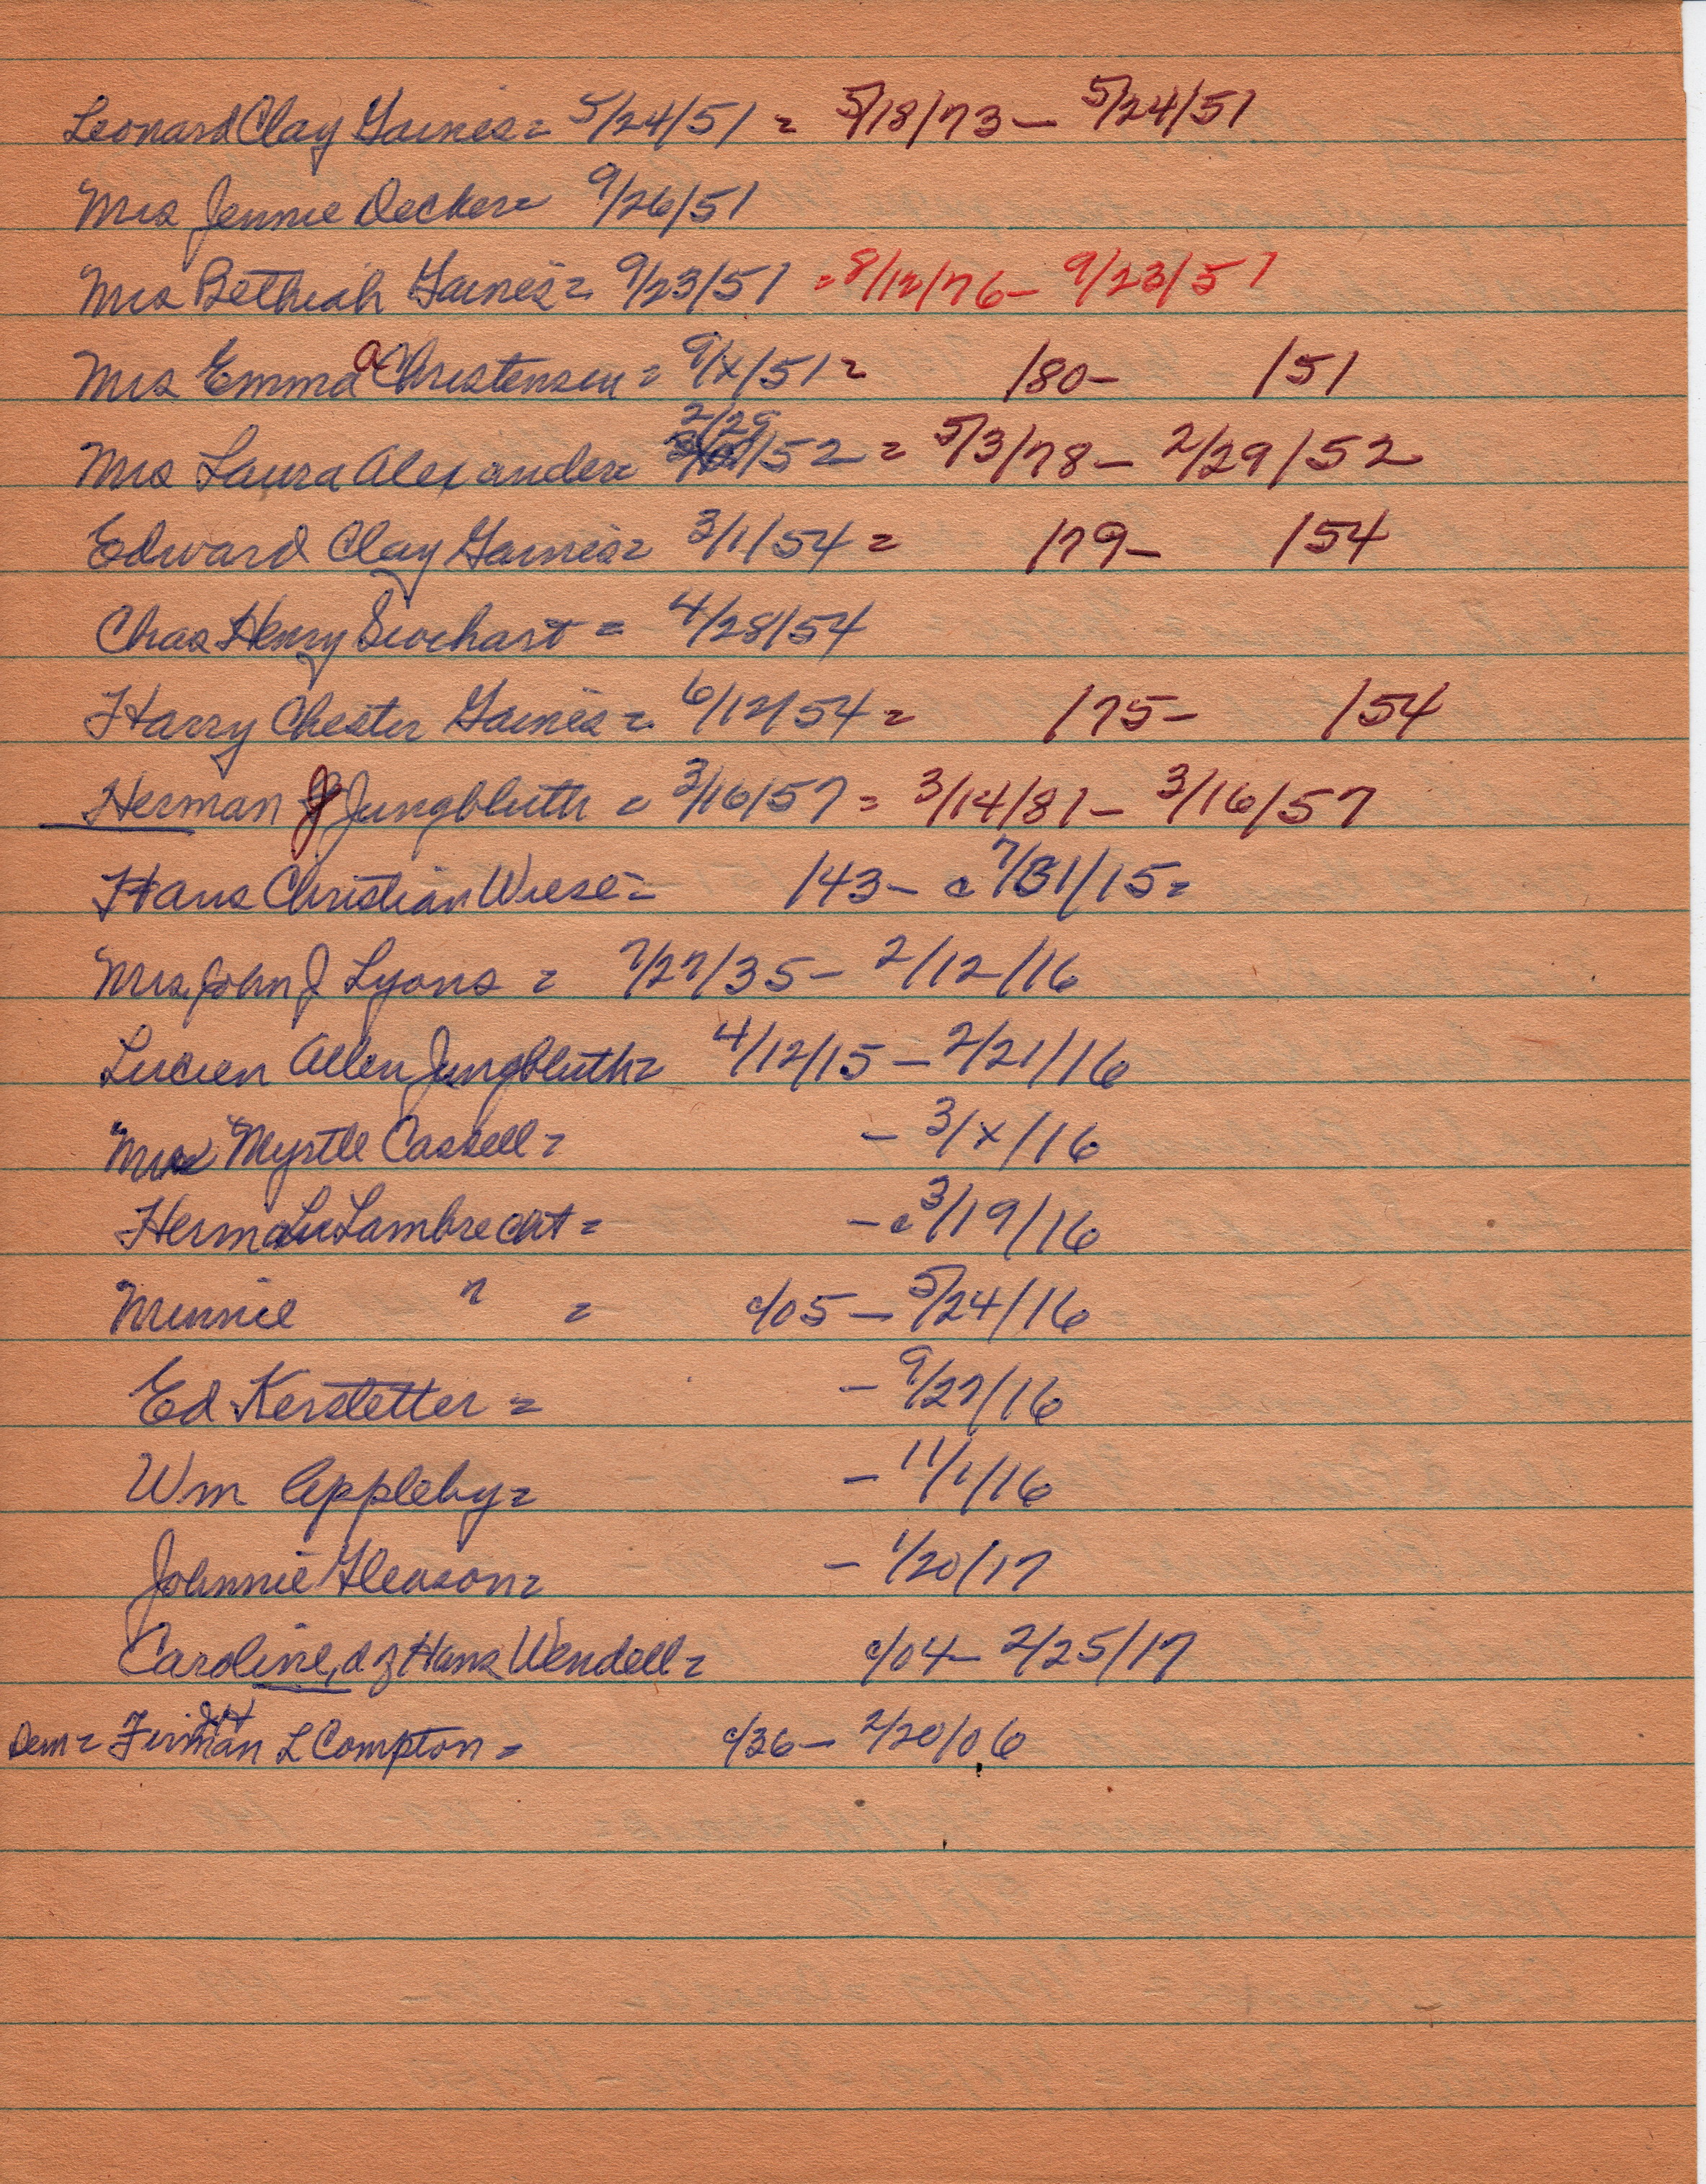 Leonard Clay Gaines = 5/24/51 = 5/18/73 – 5/24/51
Mrs Jennie Decker = 9/26/51
Mrs Bethiah Gaines = 9/23/51 = 8/12/76 – 9/23/51
Mrs Emma a Christensen = 9/x/51 = /80 – /51
Mrs Laura Alexander = 2/29/52 = 5/3/78 – 2/29/52
Edward Clay Gaines = 3/1/54 = /79 – /54
Chas Henry = 4/28/54
Harry Chester Gaines = 6/12/54 = /75 – /54
Herman J Jungbluth = 3/16/57 = 3/14/81 – 3/16/57
Hans Christian Wiese = /43 – c 7/31/15 =
Mrs. John J Lyons = 7/27/35 – 2/12/16
Lucien Allen Jungbluth = 4/12/15 – 2/21/16
Mrs Myrtle Caskell = – 3/x/16
Lambrecht = – c 3/19/16
Minnie " = c/05 – 5/24/16
Ed Kerstetter = – 9/27/16
Wm Appleby = – 11/1/16
Johnnie Gleason = – 1/20/17
Caroline, d of Hans Wendell = c/04 – 2/25/17
Dem = Firman L Compton = c/36 – 2/20/06